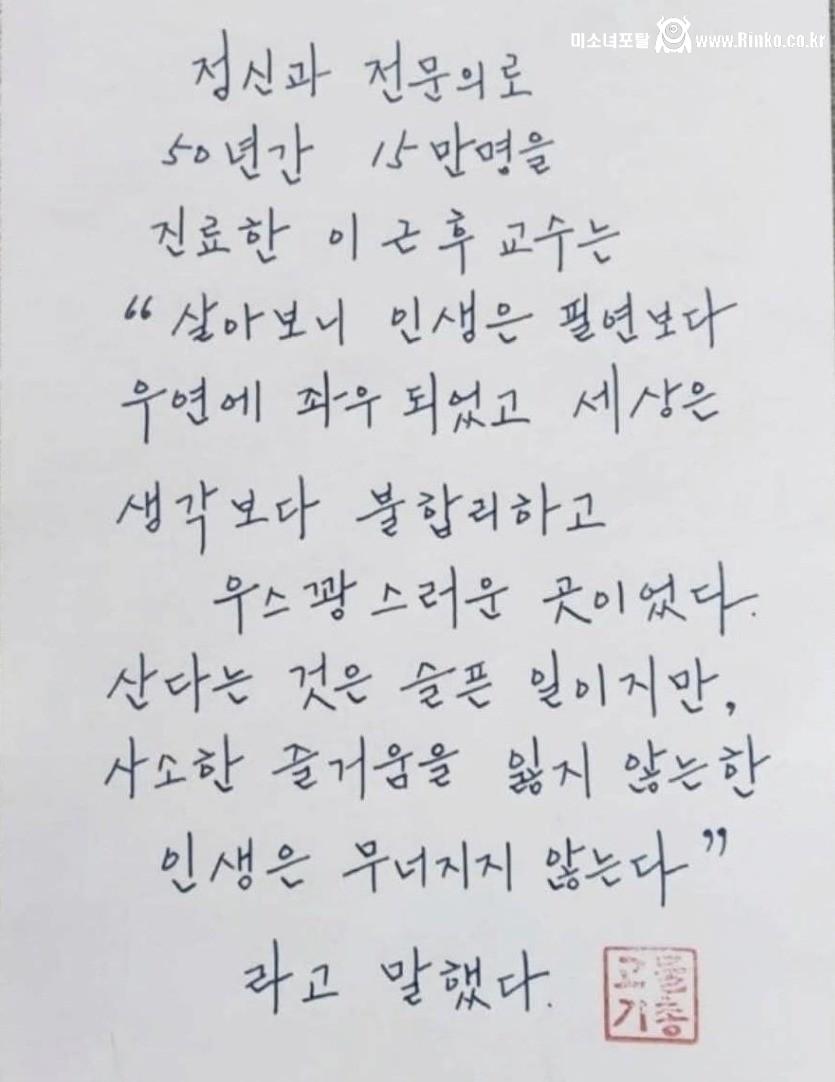 미소녀포탈 www.Rinko.co.kr
정신과 전문의로
50년간 15만명을
진료한 이근후 교수는
“살아보니 인생은 필연보다
우연에 좌우 되었고 세상은
생각보다 불합리하고
우스꽝스러운 곳이었다.
산다는 것은 슬픈 일이지만,
사소한 즐거움을 잃지 않는한
인생은 무너지지 않는다”
라고 말했다.
고
기